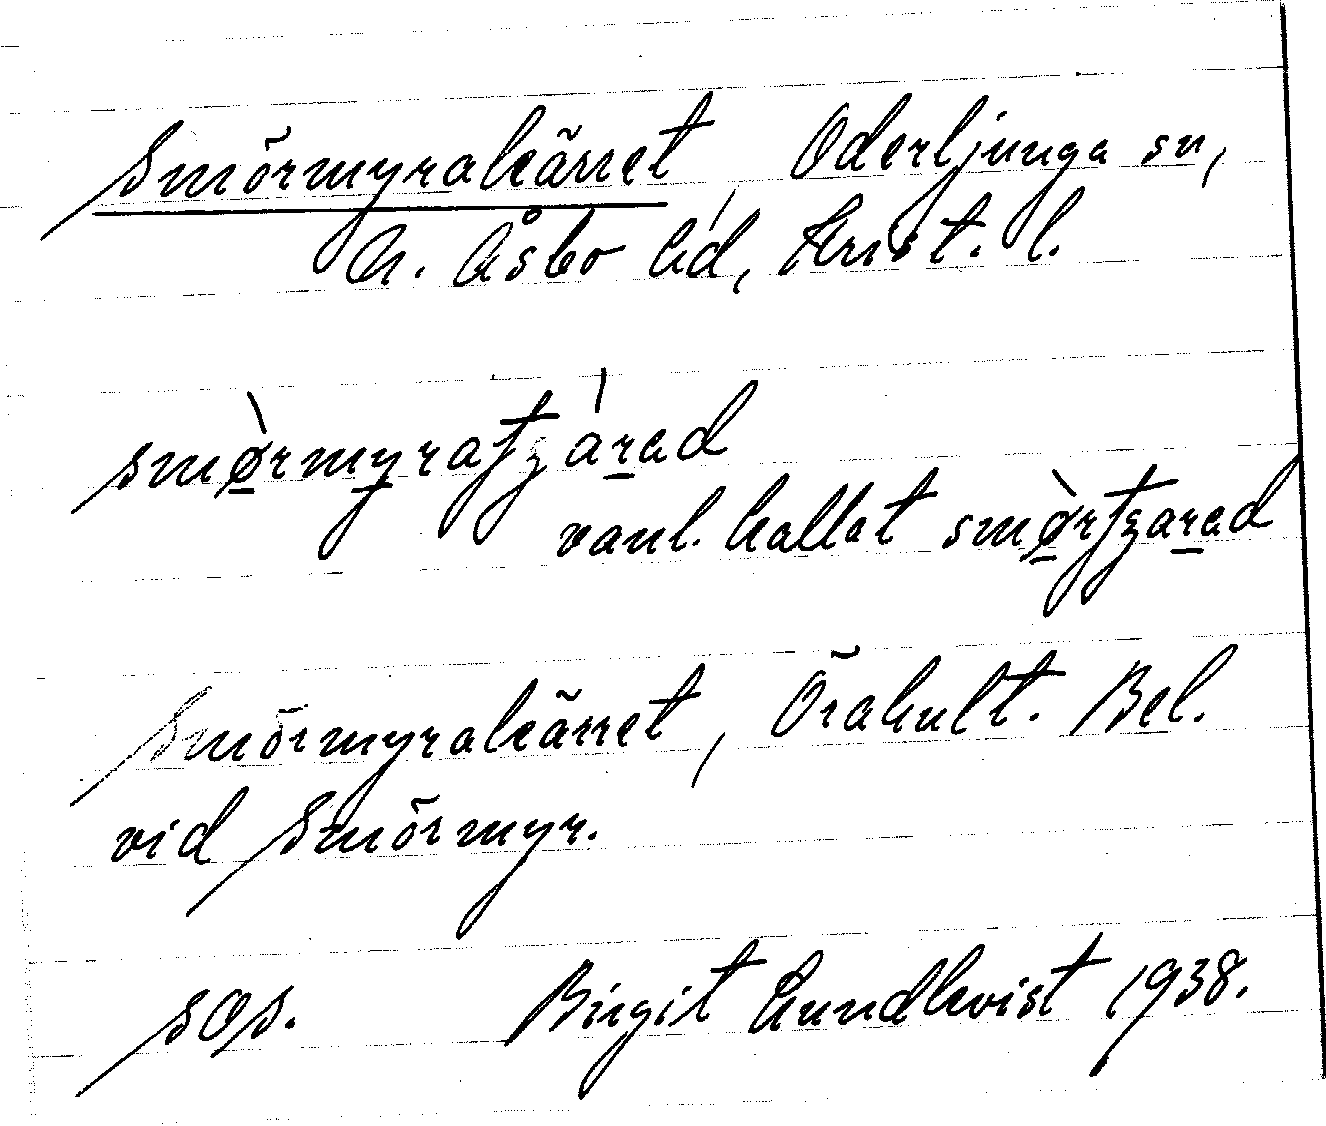 Smörmyrakärret Oderljunga sn,
N. Åsbo hd, Krist. l.
smø̀rmyratʒárad
vanl. kallat smø̀rtʒarad
Smörmyrakärret, Örahult. Bel.
vid Smörmyr.
sOs. Birgit Lundkvist 1938.